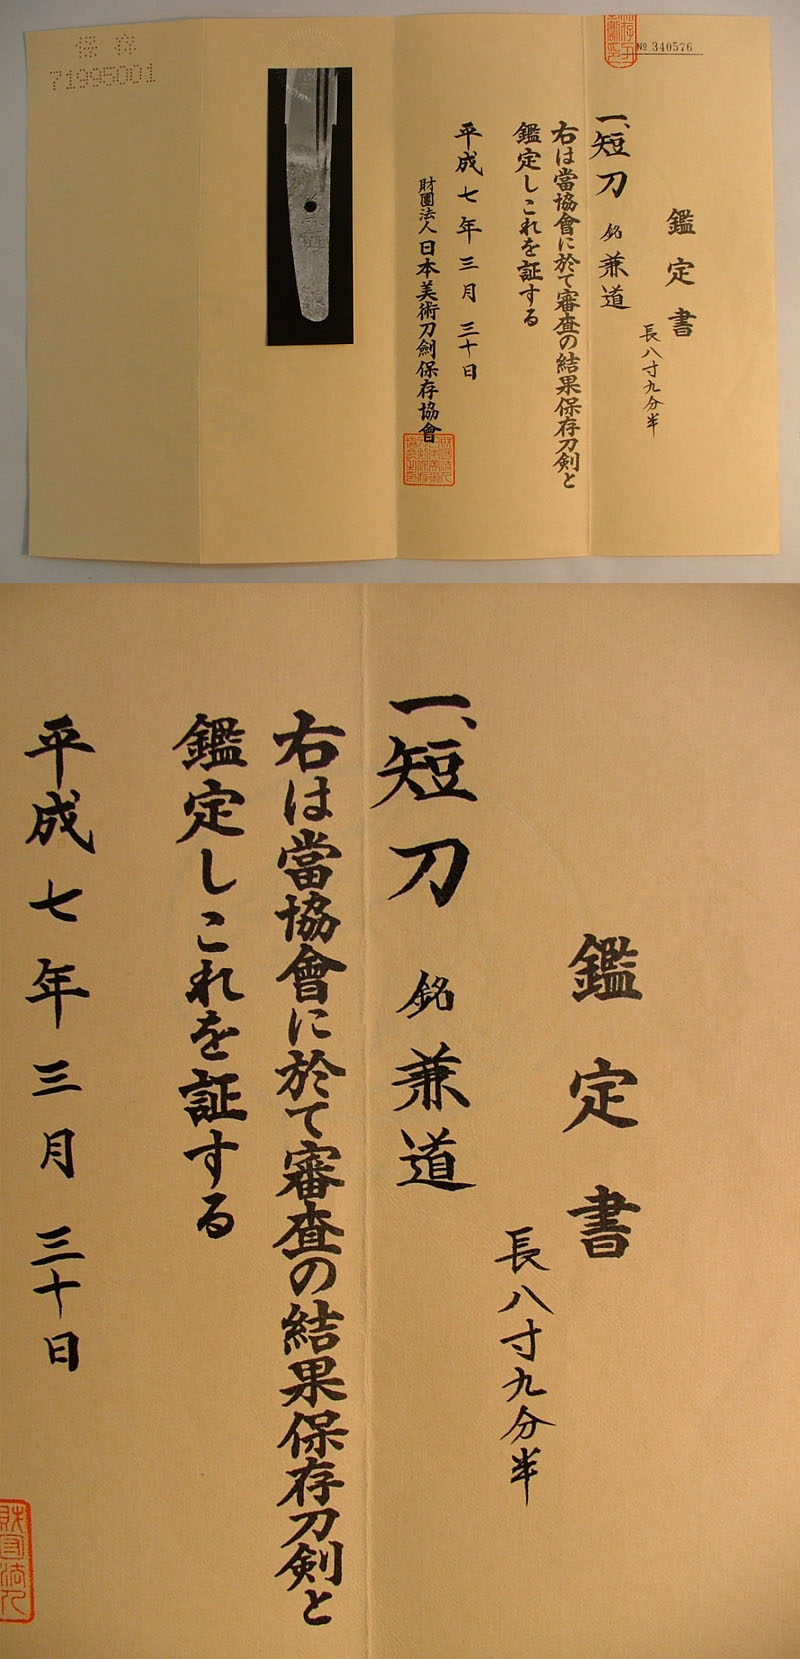 № 340576
鑑定書
長八寸九分半
一、短刀 銘 兼道
右は當協會に於て審査の結果保存刀剣と
鑑定しこれを証する
平成七年三月三十日
財團法人日本美術刀劍保存協會
保存
71995001
鑑定書
長八寸九分半
一、短刀 銘 兼道
右は當協會に於て審査の結果保存刀剣と
鑑定しこれを証する
平成七年三月三十日
財団法人